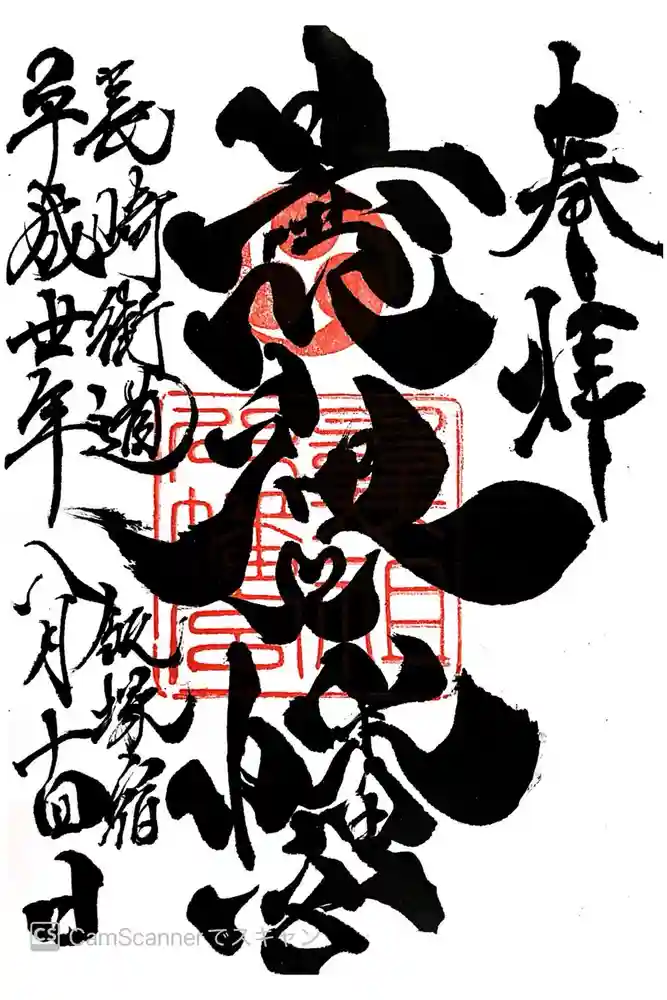 奉拝
曩祖八幡宮
長崎街道 飯塚宿
平成丗年 八月十四日
CS CamScannerでスキャン